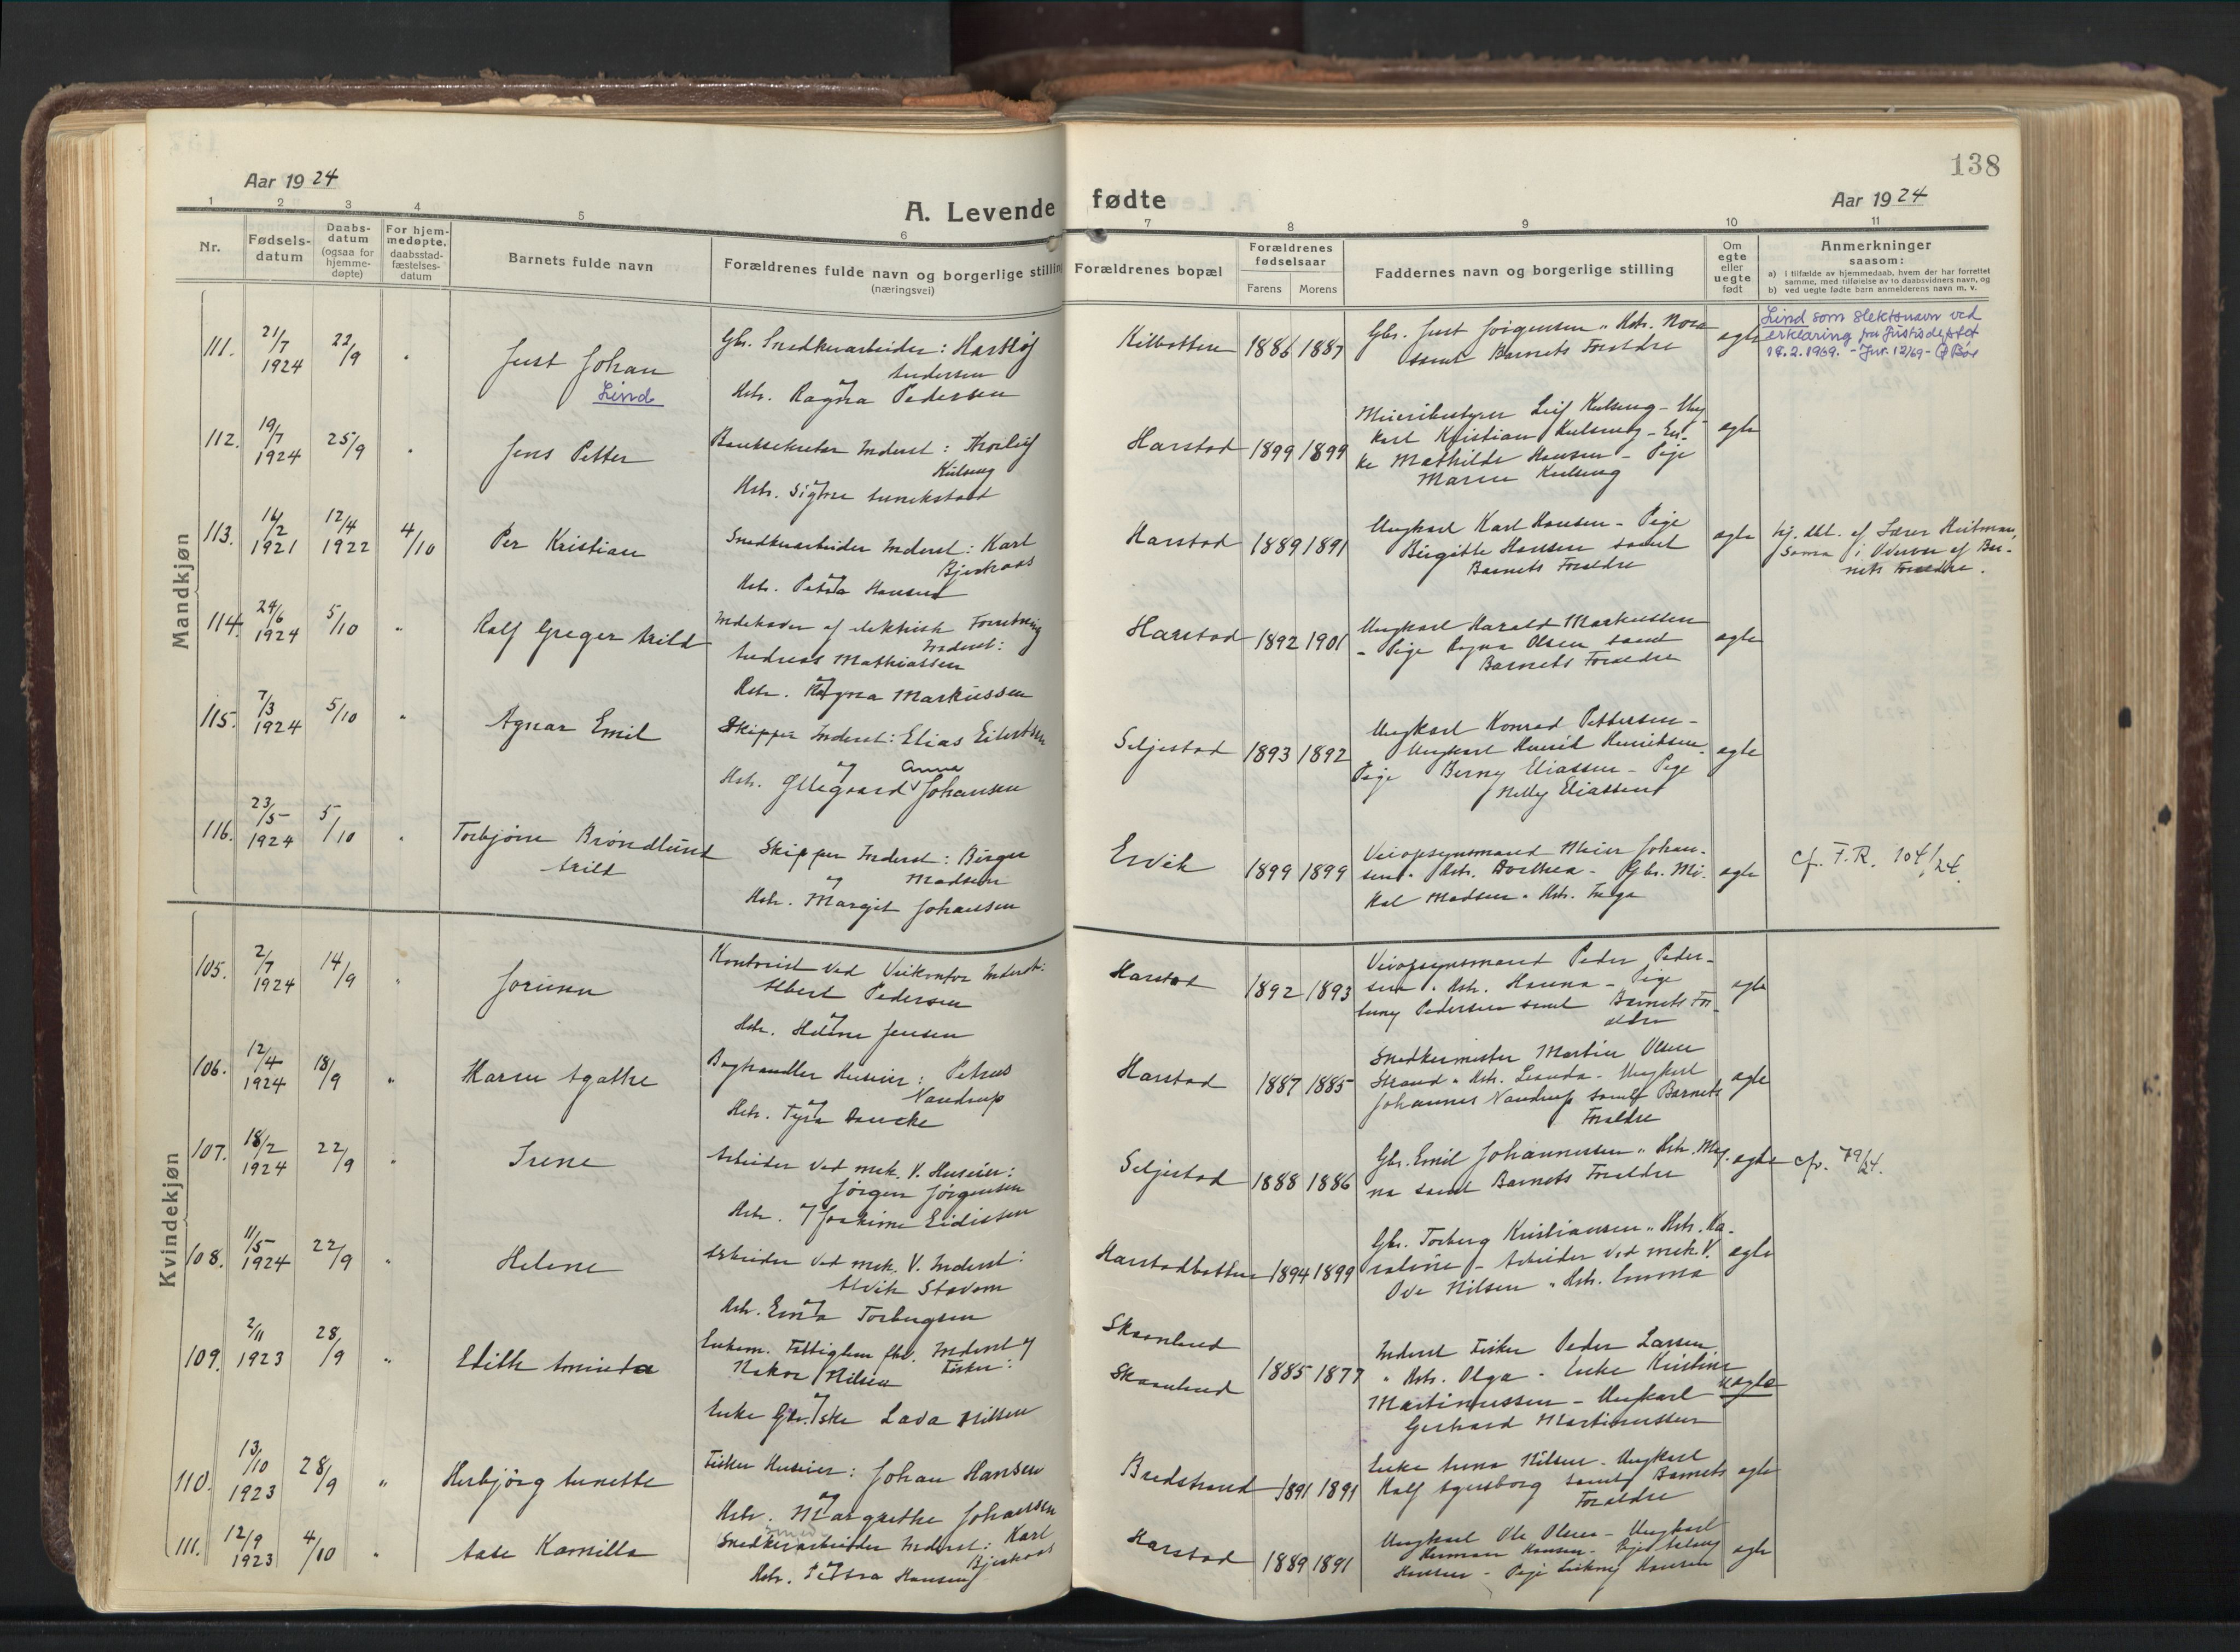 138
Aar 1924
A. Levende fødte
Aar 1924
1 2 3 4 5 6 7 8 9 10 11
Nr.
Fødsels-
datum
Daabs-
datum
(ogsaa for
hjemme-
døpte)
For hjem-
medøpte.
daabsstad-
fæstelses-
datum
Barnets fulde navn
Forældrenes fulde navn og borgerlige stilling
(næringsvei)
Forældrenes bopæl
Forældrenes
fødselsaar
Farens Morens
Faddernes navn og borgerlige stilling
Om
egte
eller
uegte
født
Anmerkninger
saasom:
a) i tilfælde av hjemmedaab, hvem der har forrettet
samme, med tilføielse av to daabsvidners navn, og
b) ved uegte fødte barn anmelderens navn m. v.
Mandkjøn
111. 21/7 1924 22/9 "
Just Johan
Lind
Gbr. Snedkerarbeider:
Andersen
og
Hstr. Ragna Pedersen
Kilbotten 1886 1887
Gbr. Just Jørgensen " Hstr. Nora
samt Barnets Forældre
ægte
Lind som slektsnavn ved
erklæring fra Justisdeptet
18.2.1969. - Jnr. 12/69 -
112. 19/7 1924 25/9 "
Jens Petter
Inderst:
og
Hstr. Signe
Harstad 1899 1899
Meieribestyrer Leif Kulseng - Ung-
karl Kristian Kulseng - En-
ke Mathilde Hansen - Pige
Maren Kulseng
ægte
113. 16/2 1921 12/4 1922 4/10
Per Kristian
Snedkerarbeider Inderst: Karl
Bjerkaas
og
Hstr. Petra Hansen
Harstad 1889 1891
Ungkarl Karl Hansen - Pige
Birgitte Hansen samt
Barnets Forældre
ægte
hj. døbt. af Lærer
samme i Overvær af Bar-
nets Forældre.
114. 24/6 1924 5/10 "
Ralf Greger Arild
Indehaver af elektrisk Forretning
Inderst:
Andreas Mathiassen
og
Hstr. Ragna Markussen
Harstad 1892 1901
Ungkarl Harald Markussen
- Pige Ragna Olsen samt
Barnets Forældre
ægte
115. 7/3 1924 5/10 "
Agnar Emil
Skipper Inderst: Elias Eilertsen
og Anna
Hstr. Ellegaard Johansen
Seljestad 1893 1892
Ungkarl Konrad Pettersen -
Ungkarl Henrik Henriksen -
Pige Berny Eliassen - Pige
Nelly Eliassen
ægte
116. 23/5 1924 5/10 "
Torbjørn Brøndlund
Arild
Skipper Inderst: Birger
Madsen
og
Hstr. Margit Johansen
Ervik 1899 1899
Veiopsynsmand Meier Johan-
sen " Hstr. Dorthea - Gbr. Mi-
kal Madsen " Hstr. Helga
ægte
cf. F.R. 104/24.
Kvindekjøn
105. 2/7 1924 14/9 "
Jorunn
Kontorist ved Veikontor Inderst:
Albert Pedersen
og
Hstr. Helene Jensen
Harstad 1892 1893
Veiopsynsmand Peder Peder-
sen " Hstr. Hanna - Pige
Pedersen samt Barnets For-
ældre
ægte
106. 12/4 1924 18/9 "
Karen Agathe
Boghandler Huseier: Petrus
Naudrup
og
Hstr. Tyra Dancke
Harstad 1887 1885
Snedkermester Martin Olsen
Strand " Hstr. Leonda - Ungkarl
Johannes Naudrup samt Barnets
Forældre
ægte
107. 18/2 1924 22/9 "
Irene
Arbeider ved mek. V. Huseier:
Jørgen Jørgensen
Hstr. og Joakime Eidissen
Seljestad 1888 1886
Gbr. Emil Johannessen " Hstr. Mag-
na samt Barnets Forældre
ægte
cfr. 79/24.
108. 11/5 1924 22/9 "
Helene
Arbeider ved mek. V. Inderst:
Alvik Stavem
og
Hstr. Erna Torbergsen
Harstadbotten 1894 1899
Gbr. Torberg Kristiansen " Hstr. Ka-
roline - Arbeider ved mek. V.
Ove Nilsen " Hstr. Emma
ægte
109. 2/11 1923 28/9 "
Edith Aminda
Enkem. Inderst og
Hakon Nilsen Fisker:
og
Enke Lava Nilssen
Skaanland
Skaanland
1885 1877
Inderst Fisker Peder Larsen
" Hstr. Olga - Enke Kristine
Martinussen - Ungkarl
Gerhard Martinussen
uægte
110. 13/10 1923 28/9 "
Herbjørg Annette
Fisker Huseier: Johan Hansen
og
Hstr. Margrethe Johansen
Bredstrand 1891 1891
Enke Anna Nilsen - Ungkarl
Ralf Agersborg samt Barnets
Forældre
ægte
111. 12/9 1923 4/10 "
Aase Kamilla
Snedkerarbeider Inderst: Karl
Bjerkaas
og
Hstr. Petra Hansen
Harstad 1889 1891
Ungkarl Ole Olsen - Ungkarl
Herman Hansen - Pige Aslaug
Hansen - Pige Hansen
ægte